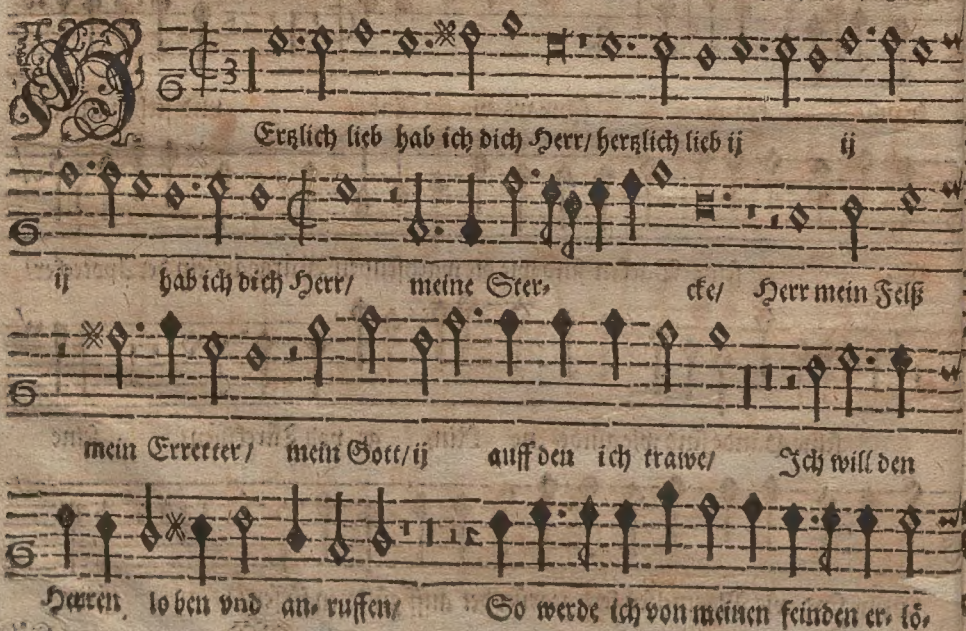 HErtzlich lieb hab ich dich Herr/ hertzlich lieb ij ij
ij hab ich dich Herr/ meine Ster- cke/ Herr mein Felß
mein Erretter/ mein Gott/ ij auff den ich trawe/ Ich will den
Herren loben vnd an- ruffen/ So werde ich von meinen feinden er- lö-